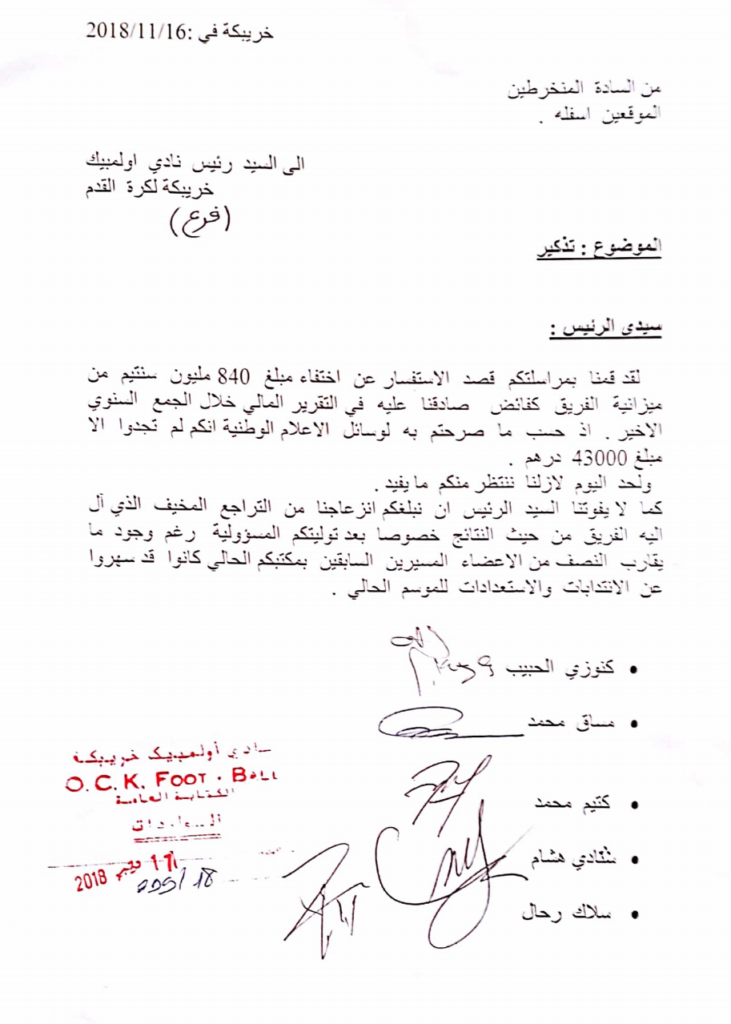 خريبكة في :2018/11/16
من السادة المنخرطين
الموقعين اسفله .
الى السيد رئيس نادي اولمبيك
خريبكة لكرة القدم
(فرع)
الموضوع : تذكير
سيدي الرئيس :
لقد قمنا بمراسلتكم قصد الاستفسار عن اختفاء مبلغ 840 مليون سنتيم من
ميزانية الفريق كفائض صادقنا عليه في التقرير المالي خلال الجمع السنوي
الاخير . اذ حسب ما صرحتم به لوسائل الاعلام الوطنية انكم لم تجدوا الا
مبلغ 43000 درهم .
ولحد اليوم لازلنا ننتظر منكم ما يفيد .
كما لا يفوتنا السيد الرئيس ان نبلغكم انزعاجنا من التراجع المخيف الذي آل
اليه الفريق من حيث النتائج خصوصا بعد توليتكم المسؤولية رغم وجود ما
يقارب النصف من الاعضاء المسيرين السابقين بمكتبكم الحالي كانوا قد سهروا
عن الانتدابات والاستعدادات للموسم الحالي .
• كنوزي الحبيب
• مساق محمد
• كتيم محمد
• شفادي هشام
• سلاك رحال
نادي أولمبيك خريبكة
O.C.K. FOOT . BALL
الكتابة العامة
الـواردات
2018